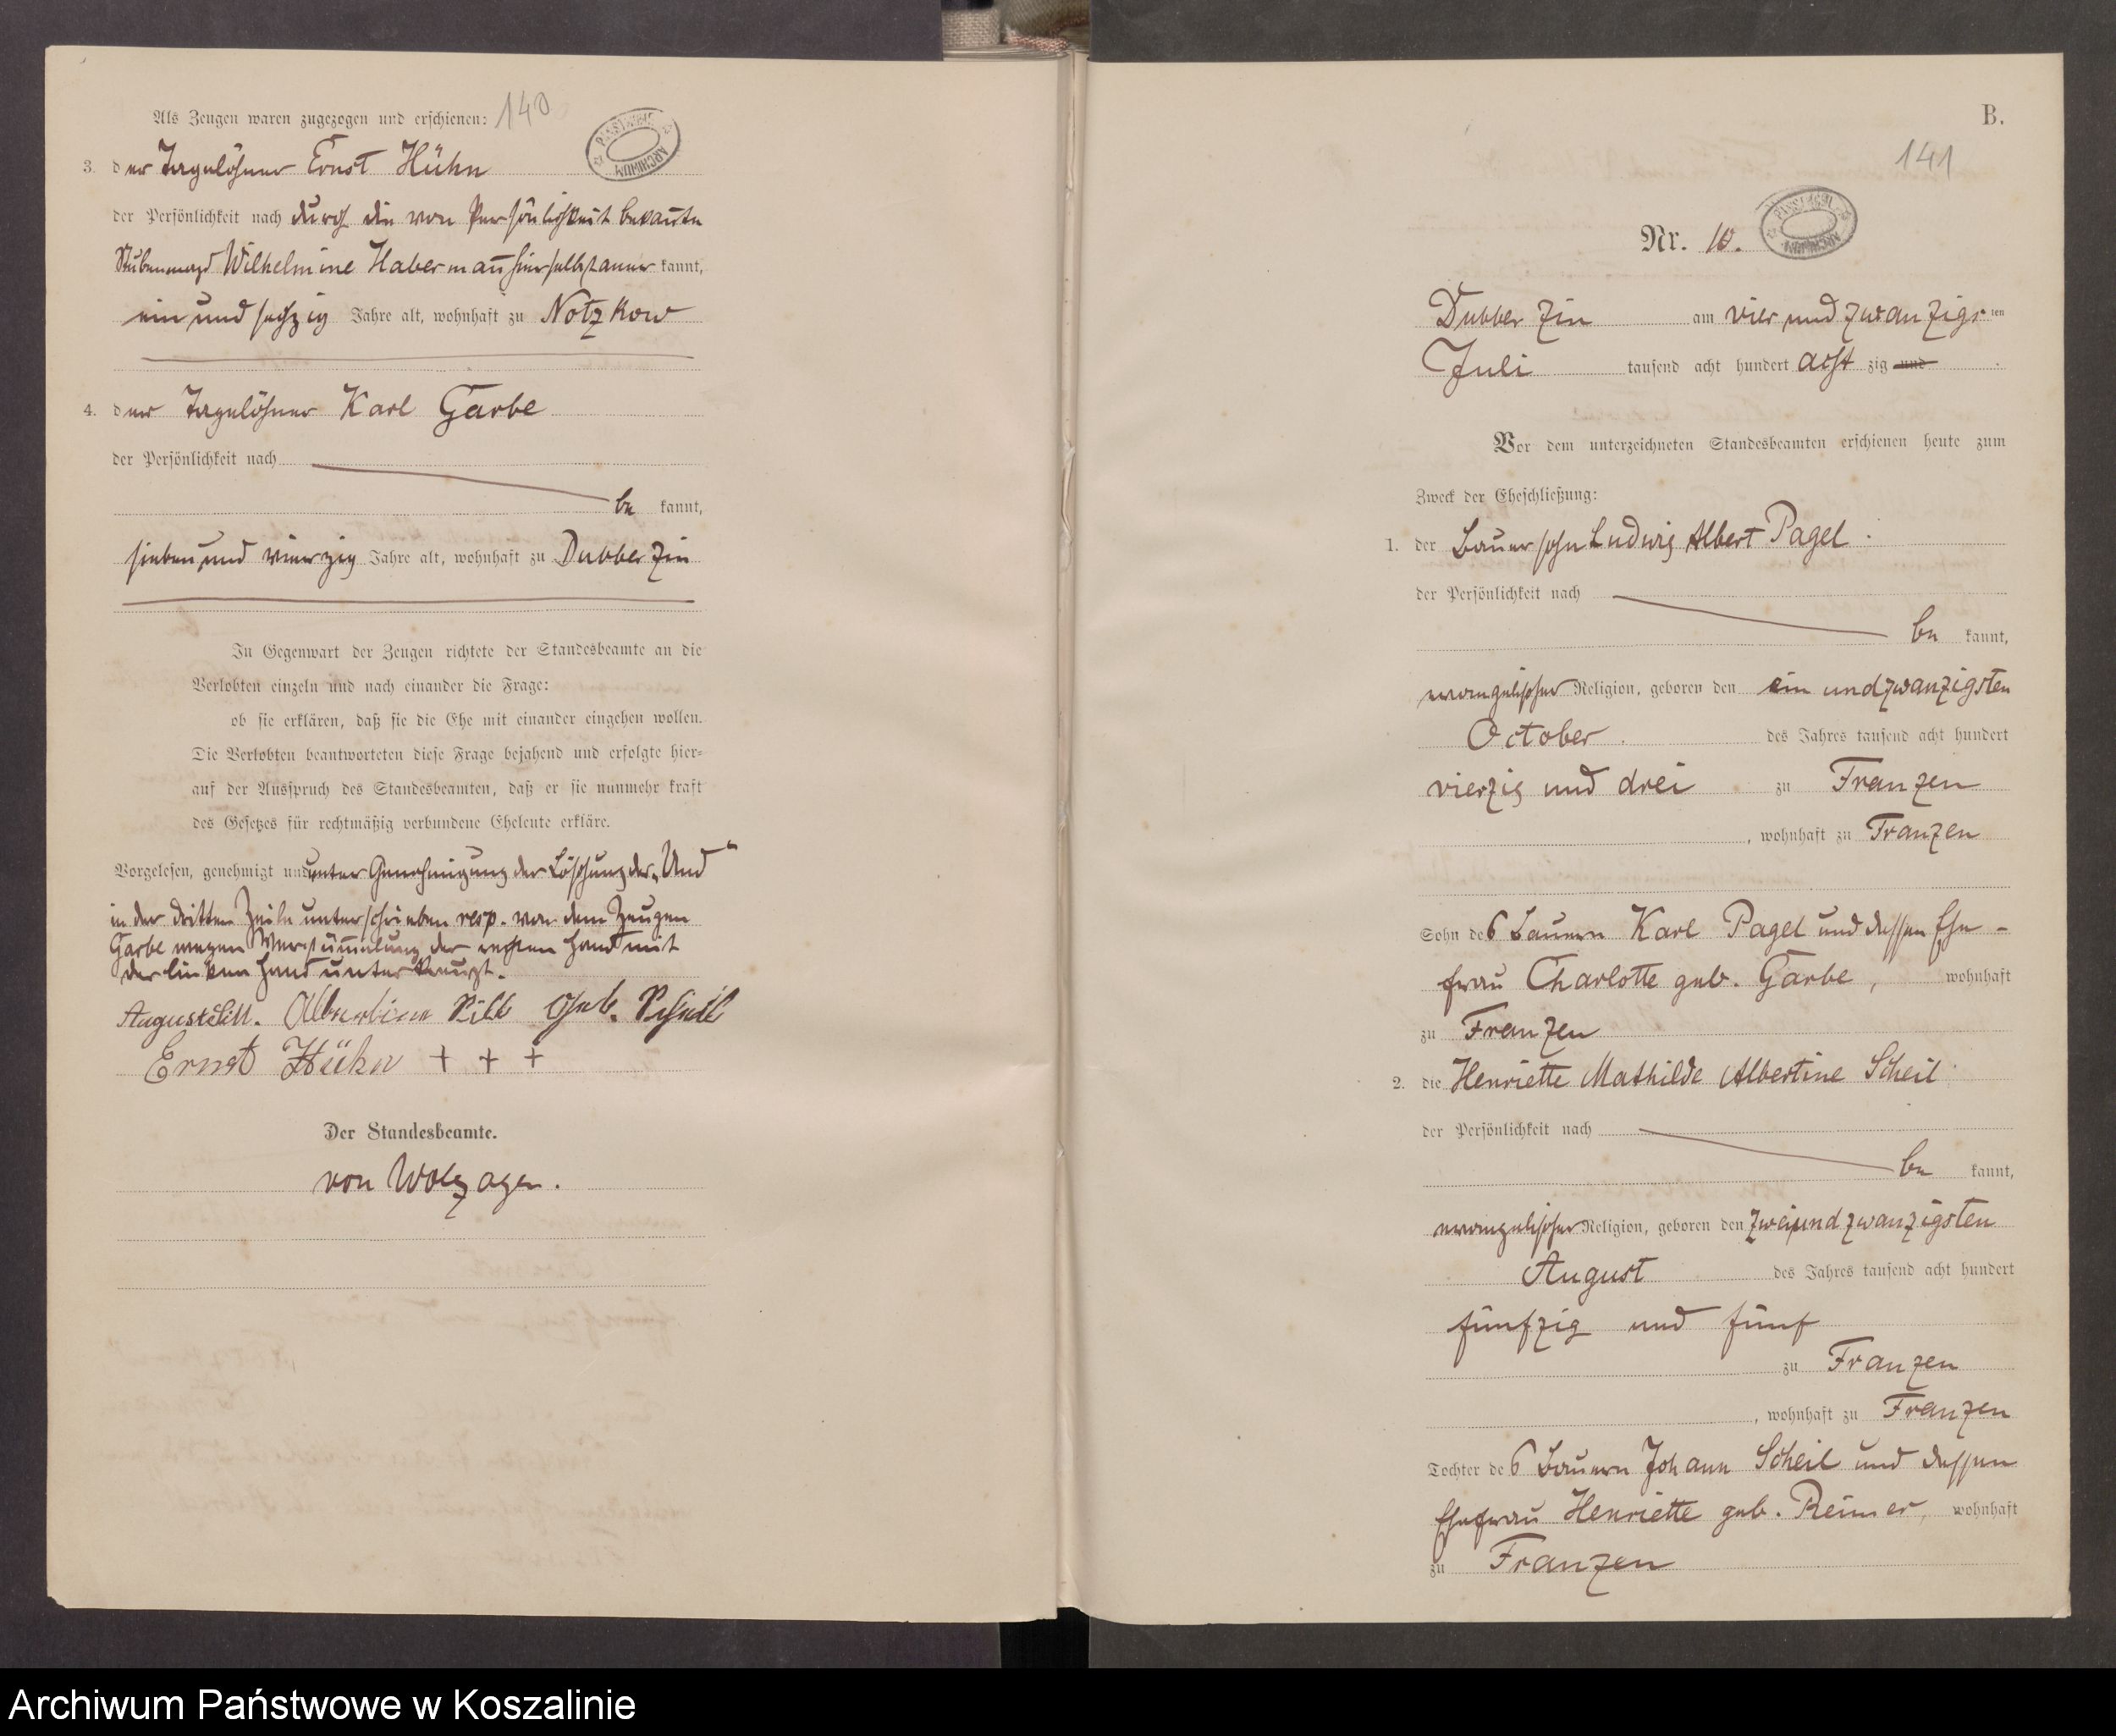 Als Zeugen waren zugezogen und erschienen: 140
3. der Tagelöhner Ernst Hühn
der Persönlichkeit nach durch die von Persönlichkeit bekannte
Stubenmagd Wilhelmine Habermann hierselbst anerkannt,
ein und sechzig Jahre alt, wohnhaft zu Notzkow
4. der Tagelöhner Karl Garbe
der Persönlichkeit nach
be kannt,
sieben und vierzig Jahre alt, wohnhaft zu Dubberzin
In Gegenwart der Zeugen richtete der Standesbeamte an die
Verlobten einzeln und nach einander die Frage:
ob sie erklären, daß sie die Ehe mit einander eingehen wollen.
Die Verlobten beantworteten diese Frage bejahend und erfolgte hier=
auf der Ausspruch des Standesbeamten, daß er sie nunmehr kraft
des Gesetzes für rechtmäßig verbundene Eheleute erkläre.
Vorgelesen, genehmigt und unter Genehmigung der Löschung des „Und“
in der dritten Zeile unterschrieben resp. von dem Zeugen
Garbe wegen Verstümmelung der rechten Hand mit
der linken Hand unterkreuzt.
August Albertine Geb.
Ernst Hühn + + +
Der Standesbeamte.
von Wolzogen.
B.
141
Nr. 10.
Dubberzin am vier und zwanzigsten
Juli tausend acht hundert acht zig und
Vor dem unterzeichneten Standesbeamten erschienen heute zum
Zweck der Eheschließung:
1. der Bauersohn Ludwig Albert Pagel
der Persönlichkeit nach
be kannt,
evangelischer Religion, geboren den ein und zwanzigsten
October des Jahres tausend acht hundert
vierzig und drei zu Franzen
, wohnhaft zu Franzen
Sohn des Bauern Karl Pagel und dessen Ehe-
frau Charlotte geb. Garbe, wohnhaft
zu Franzen
2. die Henriette Mathilde Albertine Scheil
der Persönlichkeit nach
be kannt,
evangelischer Religion, geboren den zwei und zwanzigsten
August des Jahres tausend acht hundert
fünfzig und fünf
zu Franzen
, wohnhaft zu Franzen
Tochter des Bauern Johann Scheil und dessen
Ehefrau Henriette geb. Reimer, wohnhaft
zu Franzen
Archiwum Państwowe w Koszalinie